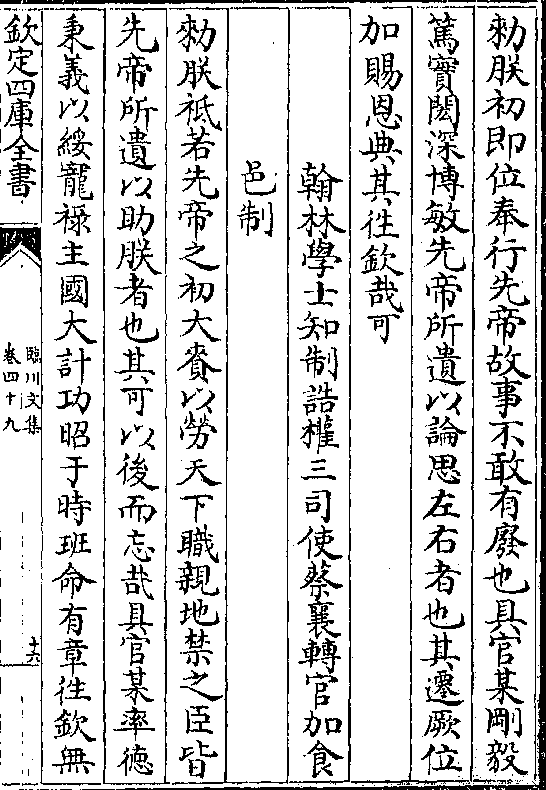 勑朕初即位奉行先帝故事不敢有廢也具官某剛毅
篤實閎深博敏先帝所遺以論思左右者也其遷厥位
加賜恩典其往欽哉可
翰林學士知制誥權三司使蔡襄轉官加食
邑制
勑朕祗若先帝之初大賚以勞天下職親地禁之臣皆
先帝所遺以助朕者也其可以後而忘哉具官某率徳
秉義以綏寵禄主國大計功昭于時班命有章徃欽無
欽定四庫全書
臨川文集
卷四十九
十六